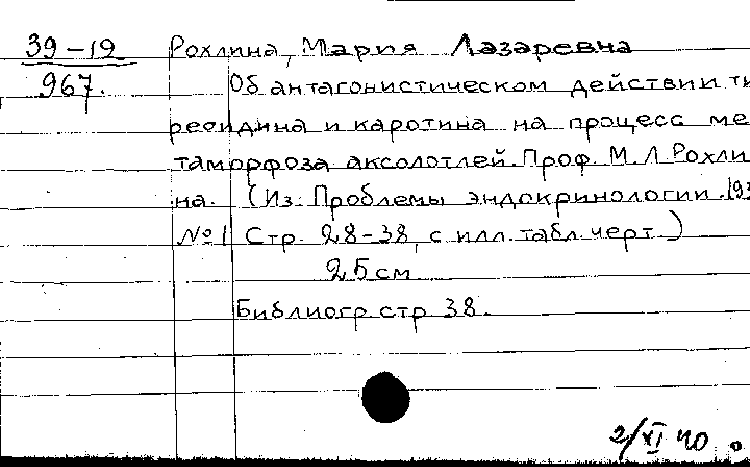 39-19 Рохлина, Мария Лазаревна
967. Об антагонистическом действии ти
реоидина и каротина на процесс ме
таморфоза аксолотлей. Проф. М. Л. Рохли
на. (Из: Проблемы эндокринологии. 193
№1 Стр. 28-38, с илл. табл. черт.)
25 см
Библиогр. стр 38.
2/XI 40.